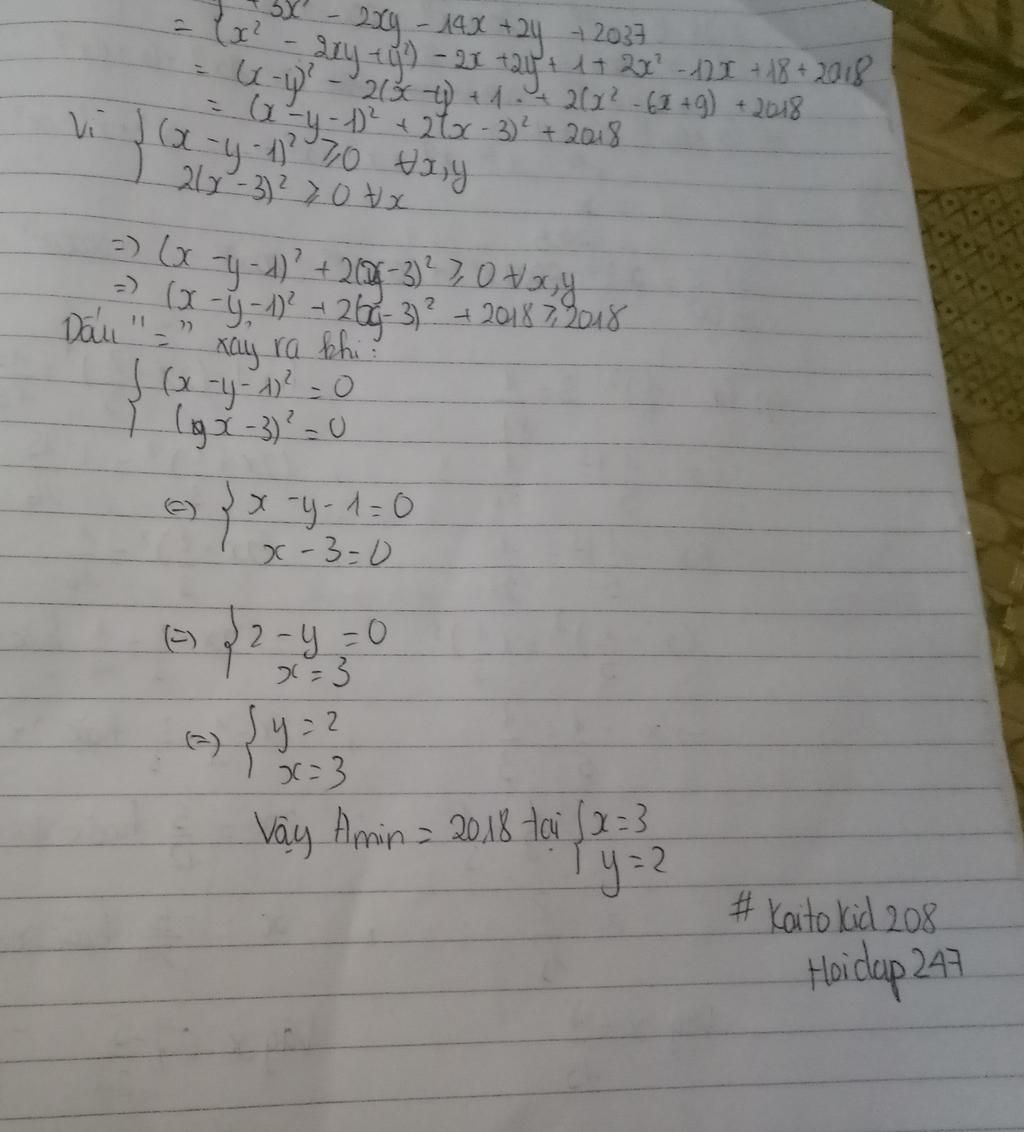 + 3x² - 2xy - 14x + 2y + 2037
= (x² - 2xy + y²) - 2x + 2y + 1 + 2x² - 12x + 18 + 2018
= (x - y)² - 2(x - y) + 1 + 2(x² - 6x + 9) + 2018
= (x - y - 1)² + 2(x - 3)² + 2018
Vì { (x - y - 1)² ≥ 0 ∀x,y
2(x - 3)² ≥ 0 ∀x
=> (x - y - 1)² + 2(x - 3)² ≥ 0 ∀x,y
=> (x - y - 1)² + 2(x - 3)² + 2018 ≥ 2018
Dấu "=" xảy ra khi:
{ (x - y - 1)² = 0
(x - 3)² = 0
(=) { x - y - 1 = 0
x - 3 = 0
(=) { 2 - y = 0
x = 3
(=) { y = 2
x = 3
Vậy Amin = 2018 tại { x = 3
y = 2
# Kaito kid 208
Hoidap247